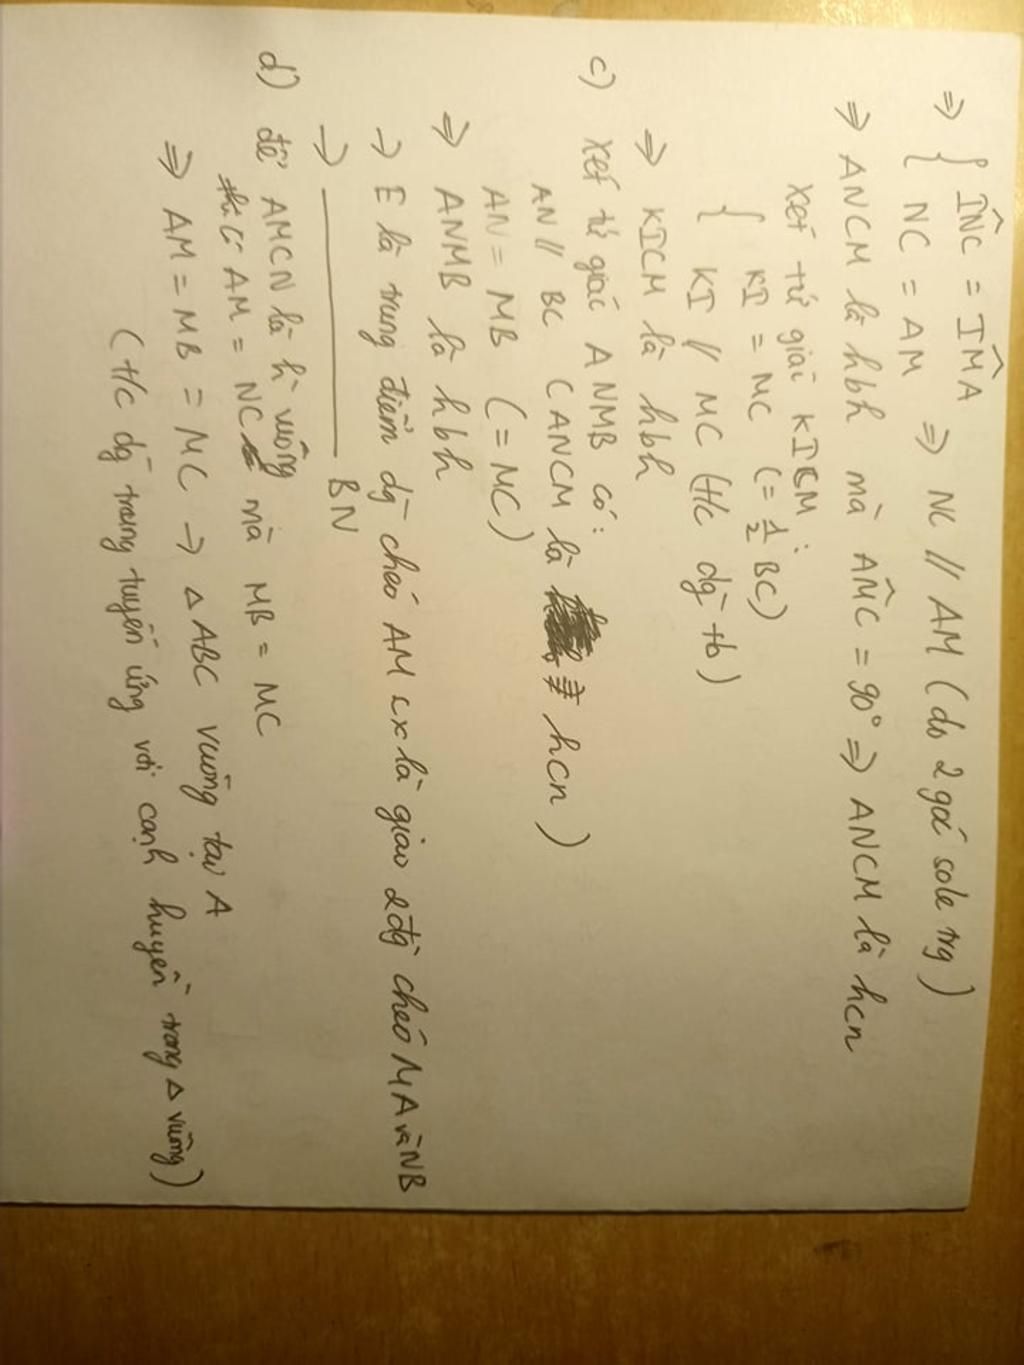 => { INC^ = IMA^
{ NC = AM => NC // AM (do 2 góc sole trg)
=> ANCM là hbh mà AMC^ = 90° => ANCM là hcn
Xét tứ giác KICM:
{ KI = MC (= 1/2 BC)
KI // MC (t/c đg tb)
=> KICM là hbh
c) Xét tứ giác ANMB có:
AN // BC (ANCM là hcn)
AN = MB (= MC)
=> ANMB là hbh
-> E là trung điểm đg chéo AM cx là giao 2 đg chéo MA và NB
-> BN
d) để AMCN là h vuông
thì AM = NC mà MB = MC
=> AM = MB = MC -> Δ ABC vuông tại A
(t/c đg trung tuyến ứng với cạnh huyền trong Δ vuông)